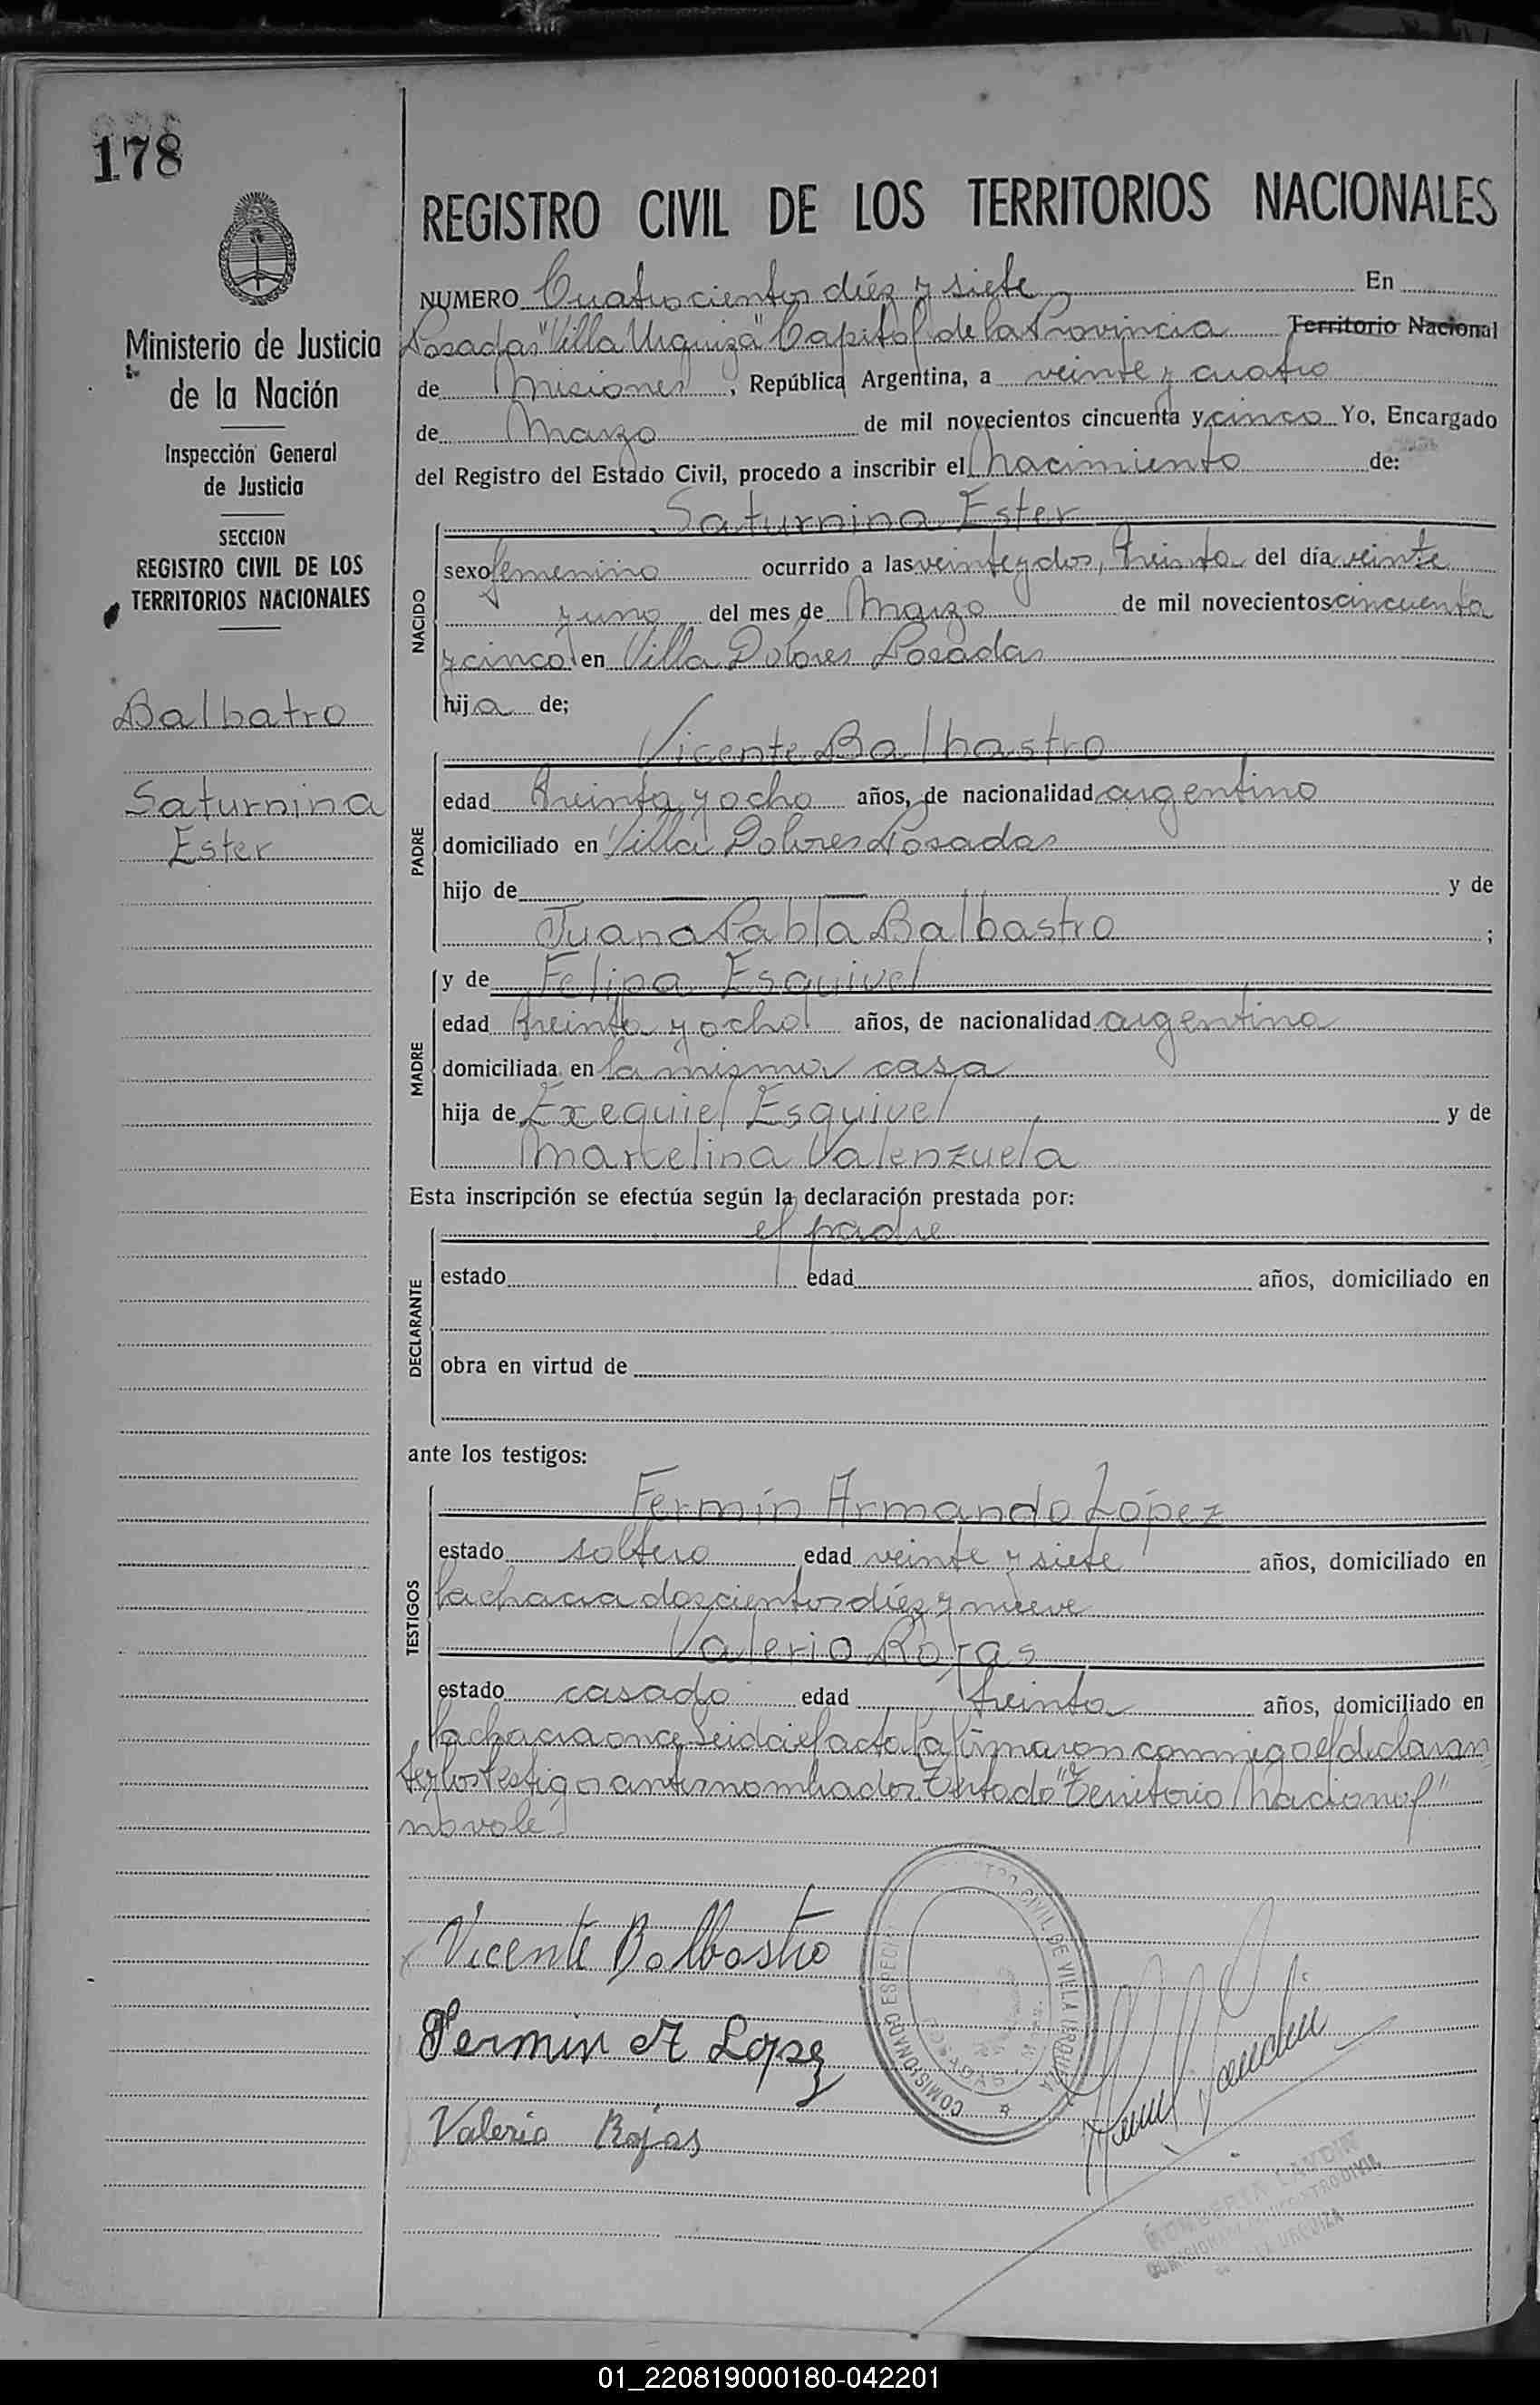 178
Ministerio de Justicia
de la Nación
Inspección General
de Justicia
SECCION
REGISTRO CIVIL DE LOS
TERRITORIOS NACIONALES
Balbatro
Saturnina
Ester
REGISTRO CIVIL DE LOS TERRITORIOS NACIONALES
NUMERO Cuatrocientos diéz y siete En
Posadas "Villa Urquiza" Capital de la Provincia Territorio Nacional
de Misiones, República Argentina, a veinte y cuatro
de Marzo de mil novecientos cincuenta y cinco Yo, Encargado
del Registro del Estado Civil, procedo a inscribir el Nacimiento de:
Saturnina Ester
NACIDO
sexo femenino ocurrido a las veinte y dos, treinta del día veinte
y uno del mes de Marzo de mil novecientos cincuenta
y cinco en Villa Dolores Posadas
hija de;
Vicente Balbastro
PADRE
edad treinta y ocho años, de nacionalidad argentino
domiciliado en Villa Dolores Posadas
hijo de y de
Juana Pabla Balbastro ;
MADRE
y de Felipa Esquivel
edad treinta y ocho años, de nacionalidad argentina
domiciliada en la misma casa
hija de Exequiel Esquivel y de
Marcelina Valenzuela
Esta inscripción se efectúa según la declaración prestada por:
el padre
DECLARANTE
estado edad años, domiciliado en
obra en virtud de
ante los testigos:
Fermín Armando López
TESTIGOS
estado soltero edad veinte y siete años, domiciliado en
la chacra doscientos diéz y nueve
Valerio Rojas
estado casado edad treinta años, domiciliado en
la chacra once Leida el acta la firmaron conmigo el declaran
te y los testigos antes nombrados. Testado "Territorio Nacional"
no vale
Vicente Balbastro
Fermin A Lopez
Valerio Rojas
CIVIL DE VILLA URQUIZA
COMISIONADO ESPECI
POSADAS
VILLA URQUIZA
01_220819000180-042201